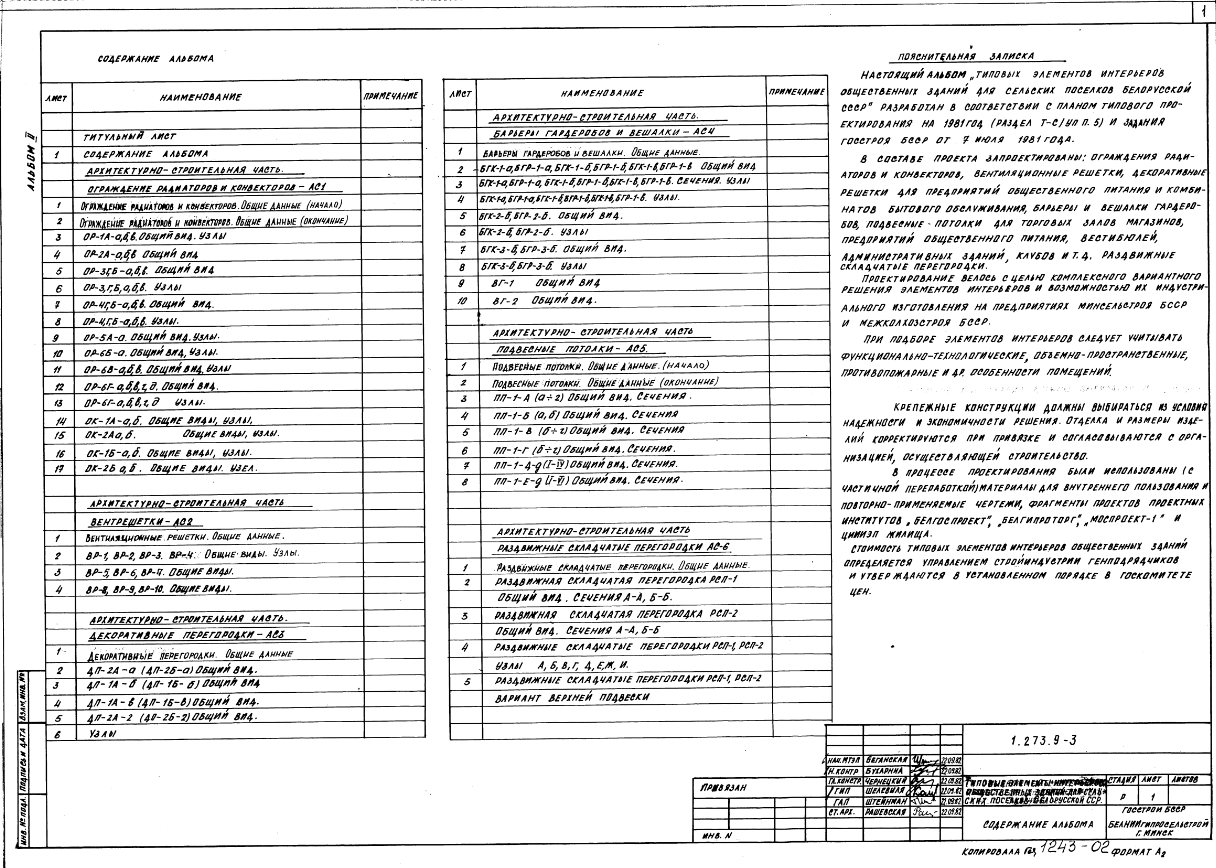 1
АЛЬБОМ II
СОДЕРЖАНИЕ АЛЬБОМА
ЛИСТ НАИМЕНОВАНИЕ ПРИМЕЧАНИЕ
ТИТУЛЬНЫЙ ЛИСТ
1 СОДЕРЖАНИЕ АЛЬБОМА
АРХИТЕКТУРНО-СТРОИТЕЛЬНАЯ ЧАСТЬ.
ОГРАЖДЕНИЕ РАДИАТОРОВ И КОНВЕКТОРОВ-АС1
1 ОГРАЖДЕНИЕ РАДИАТОРОВ И КОНВЕКТОРОВ. ОБЩИЕ ДАННЫЕ (НАЧАЛО)
2 ОГРАЖДЕНИЕ РАДИАТОРОВ И КОНВЕКТОРОВ. ОБЩИЕ ДАННЫЕ (ОКОНЧАНИЕ)
3 ОР-1А-а,б,в. ОБЩИЙ ВИД. УЗЛЫ
4 ОР-2А-а,б,в ОБЩИЙ ВИД
5 ОР-3,Г,Б-а,б,в. ОБЩИЙ ВИД
6 ОР-3,Г,Б,а,б,в. УЗЛЫ
7 ОР-4,Г,Б-а,б,в. ОБЩИЙ ВИД.
8 ОР-4,Г,Б-а,б,в. УЗЛЫ.
9 ОР-5А-а. ОБЩИЙ ВИД. УЗЛЫ.
10 ОР-6Б-а. ОБЩИЙ ВИД, УЗЛЫ.
11 ОР-6В-а,б,в. ОБЩИЙ ВИД, УЗЛЫ
12 ОР-6Г-а,б,в,г,д. ОБЩИЙ ВИД.
13 ОР-6Г-а,б,в,г,д УЗЛЫ.
14 ОК-1А-а,б. ОБЩИЕ ВИДЫ, УЗЛЫ.
15 ОК-2А а,б. ОБЩИЕ ВИДЫ, УЗЛЫ.
16 ОК-1Б-а,б. ОБЩИЕ ВИДЫ, УЗЛЫ.
17 ОК-2Б а,б. ОБЩИЕ ВИДЫ. УЗЕЛ.
АРХИТЕКТУРНО-СТРОИТЕЛЬНАЯ ЧАСТЬ
ВЕНТРЕШЕТКИ-АС2
1 ВЕНТИЛЯЦИОННЫЕ РЕШЕТКИ. ОБЩИЕ ДАННЫЕ.
2 ВР-1, ВР-2, ВР-3. ВР-4. ОБЩИЕ ВИДЫ. УЗЛЫ.
3 ВР-5, ВР-6, ВР-7. ОБЩИЕ ВИДЫ.
4 ВР-8, ВР-9, ВР-10. ОБЩИЕ ВИДЫ.
АРХИТЕКТУРНО-СТРОИТЕЛЬНАЯ ЧАСТЬ.
ДЕКОРАТИВНЫЕ ПЕРЕГОРОДКИ-АС3
1 ДЕКОРАТИВНЫЕ ПЕРЕГОРОДКИ. ОБЩИЕ ДАННЫЕ
2 ДП-2А-а (ДП-2Б-а) ОБЩИЙ ВИД.
3 ДП-1А-б (ДП-1Б-б) ОБЩИЙ ВИД
4 ДП-1А-в (ДП-1Б-в) ОБЩИЙ ВИД.
5 ДП-2А-г (ДП-2Б-г) ОБЩИЙ ВИД.
6 УЗЛЫ
ЛИСТ НАИМЕНОВАНИЕ ПРИМЕЧАНИЕ
АРХИТЕКТУРНО-СТРОИТЕЛЬНАЯ ЧАСТЬ.
БАРЬЕРЫ ГАРДЕРОБОВ И ВЕШАЛКИ-АС4
1 БАРЬЕРЫ ГАРДЕРОБОВ И ВЕШАЛКИ. ОБЩИЕ ДАННЫЕ.
2 БГК-1-а, БГР-1-а, БГК-1-б, БГР-1-б, БГК-1-в, БГР-1-в ОБЩИЙ ВИД
3 БГК-1-а, БГР-1-а, БГК-1-б, БГР-1-б, БГК-1-в, БГР-1-в. СЕЧЕНИЯ. УЗЛЫ
4 БГК-1-а, БГР-1-а, БГК-1-б, БГР-1-б, БГК-1-в, БГР-1-в. УЗЛЫ.
5 БГК-2-б, БГР-2-б. ОБЩИЙ ВИД.
6 БГК-2-б, БГР-2-б. УЗЛЫ
7 БГК-3-б, БГР-3-б. ОБЩИЙ ВИД.
8 БГК-3-б, БГР-3-б. УЗЛЫ
9 ВГ-1 ОБЩИЙ ВИД
10 ВГ-2 ОБЩИЙ ВИД.
АРХИТЕКТУРНО-СТРОИТЕЛЬНАЯ ЧАСТЬ
ПОДВЕСНЫЕ ПОТОЛКИ-АС5.
1 ПОДВЕСНЫЕ ПОТОЛКИ. ОБЩИЕ ДАННЫЕ. (НАЧАЛО)
2 ПОДВЕСНЫЕ ПОТОЛКИ. ОБЩИЕ ДАННЫЕ (ОКОНЧАНИЕ)
3 ПП-1-А (а÷г) ОБЩИЙ ВИД. СЕЧЕНИЯ.
4 ПП-1-Б (а,б) ОБЩИЙ ВИД. СЕЧЕНИЯ
5 ПП-1-В (б÷г) ОБЩИЙ ВИД. СЕЧЕНИЯ
6 ПП-1-Г (б÷г) ОБЩИЙ ВИД. СЕЧЕНИЯ.
7 ПП-1-Д-д (I-IV) ОБЩИЙ ВИД. СЕЧЕНИЯ.
8 ПП-1-Е-д (I-VI) ОБЩИЙ ВИД. СЕЧЕНИЯ.
АРХИТЕКТУРНО-СТРОИТЕЛЬНАЯ ЧАСТЬ
РАЗДВИЖНЫЕ СКЛАДЧАТЫЕ ПЕРЕГОРОДКИ АС-6
1 РАЗДВИЖНЫЕ СКЛАДЧАТЫЕ ПЕРЕГОРОДКИ. ОБЩИЕ ДАННЫЕ.
2 РАЗДВИЖНАЯ СКЛАДЧАТАЯ ПЕРЕГОРОДКА РСП-1
ОБЩИЙ ВИД. СЕЧЕНИЯ А-А, Б-Б.
3 РАЗДВИЖНАЯ СКЛАДЧАТАЯ ПЕРЕГОРОДКА РСП-2
ОБЩИЙ ВИД. СЕЧЕНИЯ А-А, Б-Б
4 РАЗДВИЖНЫЕ СКЛАДЧАТЫЕ ПЕРЕГОРОДКИ РСП-1, РСП-2
УЗЛЫ А, Б, В, Г, Д, Е, Ж, И.
5 РАЗДВИЖНЫЕ СКЛАДЧАТЫЕ ПЕРЕГОРОДКИ РСП-1, РСП-2
ВАРИАНТ ВЕРХНЕЙ ПОДВЕСКИ
ПОЯСНИТЕЛЬНАЯ ЗАПИСКА
НАСТОЯЩИЙ АЛЬБОМ „ТИПОВЫХ ЭЛЕМЕНТОВ ИНТЕРЬЕРОВ
ОБЩЕСТВЕННЫХ ЗДАНИЙ ДЛЯ СЕЛЬСКИХ ПОСЕЛКОВ БЕЛОРУССКОЙ
СССР" РАЗРАБОТАН В СООТВЕТСТВИИ С ПЛАНОМ ТИПОВОГО ПРО-
ЕКТИРОВАНИЯ НА 1981 ГОД (РАЗДЕЛ Т-С/УП П.5) И ЗАДАНИЯ
ГОССТРОЯ БССР ОТ 7 ИЮЛЯ 1981 ГОДА.
В СОСТАВЕ ПРОЕКТА ЗАПРОЕКТИРОВАНЫ: ОГРАЖДЕНИЯ РАДИ-
АТОРОВ И КОНВЕКТОРОВ, ВЕНТИЛЯЦИОННЫЕ РЕШЕТКИ, ДЕКОРАТИВНЫЕ
РЕШЕТКИ ДЛЯ ПРЕДПРИЯТИЙ ОБЩЕСТВЕННОГО ПИТАНИЯ И КОМБИ-
НАТОВ БЫТОВОГО ОБСЛУЖИВАНИЯ, БАРЬЕРЫ И ВЕШАЛКИ ГАРДЕРО-
БОВ, ПОДВЕСНЫЕ ПОТОЛКИ ДЛЯ ТОРГОВЫХ ЗАЛОВ МАГАЗИНОВ,
ПРЕДПРИЯТИЙ ОБЩЕСТВЕННОГО ПИТАНИЯ, ВЕСТИБЮЛЕЙ,
АДМИНИСТРАТИВНЫХ ЗДАНИЙ, КЛУБОВ И Т.Д. РАЗДВИЖНЫЕ
СКЛАДЧАТЫЕ ПЕРЕГОРОДКИ.
ПРОЕКТИРОВАНИЕ ВЕЛОСЬ С ЦЕЛЬЮ КОМПЛЕКСНОГО ВАРИАНТНОГО
РЕШЕНИЯ ЭЛЕМЕНТОВ ИНТЕРЬЕРОВ И ВОЗМОЖНОСТЬЮ ИХ ИНДУСТРИ-
АЛЬНОГО ИЗГОТОВЛЕНИЯ НА ПРЕДПРИЯТИЯХ МИНСЕЛЬСТРОЯ БССР
И МЕЖКОЛХОЗСТРОЯ БССР.
ПРИ ПОДБОРЕ ЭЛЕМЕНТОВ ИНТЕРЬЕРОВ СЛЕДУЕТ УЧИТЫВАТЬ
ФУНКЦИОНАЛЬНО-ТЕХНОЛОГИЧЕСКИЕ, ОБЪЕМНО-ПРОСТРАНСТВЕННЫЕ,
ПРОТИВОПОЖАРНЫЕ И ДР. ОСОБЕННОСТИ ПОМЕЩЕНИЙ.
КРЕПЕЖНЫЕ КОНСТРУКЦИИ ДОЛЖНЫ ВЫБИРАТЬСЯ ИЗ УСЛОВИЯ
НАДЕЖНОСТИ И ЭКОНОМИЧНОСТИ РЕШЕНИЯ. ОТДЕЛКА И РАЗМЕРЫ ИЗДЕ-
ЛИЙ КОРРЕКТИРУЮТСЯ ПРИ ПРИВЯЗКЕ И СОГЛАСОВЫВАЮТСЯ С ОРГА-
НИЗАЦИЕЙ, ОСУЩЕСТВЛЯЮЩЕЙ СТРОИТЕЛЬСТВО.
В ПРОЦЕССЕ ПРОЕКТИРОВАНИЯ БЫЛИ ИСПОЛЬЗОВАНЫ (С
ЧАСТИЧНОЙ ПЕРЕРАБОТКОЙ) МАТЕРИАЛЫ ДЛЯ ВНУТРЕННЕГО ПОЛЬЗОВАНИЯ И
ПОВТОРНО-ПРИМЕНЯЕМЫЕ ЧЕРТЕЖИ, ФРАГМЕНТЫ ПРОЕКТОВ ПРОЕКТНЫХ
ИНСТИТУТОВ „БЕЛГОСПРОЕКТ", „БЕЛГИПРОТОРГ", „МОСПРОЕКТ-1" И
ЦНИИЭП ЖИЛИЩА.
СТОИМОСТЬ ТИПОВЫХ ЭЛЕМЕНТОВ ИНТЕРЬЕРОВ ОБЩЕСТВЕННЫХ ЗДАНИЙ
ОПРЕДЕЛЯЕТСЯ УПРАВЛЕНИЕМ СТРОЙИНДУСТРИИ ГЕНПОДРЯДЧИКОВ
И УТВЕРЖДАЮТСЯ В УСТАНОВЛЕННОМ ПОРЯДКЕ В ГОСКОМИТЕТЕ
ЦЕН.
1.273.9-3
НАЧ.МТЭП БЕГАНСКАЯ 22.09.82
Н.КОНТР БУХАРИНА 22.09.82
ГЛ.КОНСТР ЧЕРНЕЦКИЙ 22.09.82
ГИП ШЕЛЕВИЛА 22.09.82
ГАП ШТЕЙНМАН 22.09.82
СТ.АРХ. РАШЕВСКАЯ 22.09.82
ТИПОВЫЕ ЭЛЕМЕНТЫ ИНТЕРЬЕРОВ
ОБЩЕСТВЕННЫХ ЗДАНИЙ ДЛЯ СЕЛЬ-
СКИХ ПОСЕЛКОВ БЕЛОРУССКОЙ ССР.
СТАДИЯ ЛИСТ ЛИСТОВ
Р 1
СОДЕРЖАНИЕ АЛЬБОМА
ГОССТРОЙ БССР
БЕЛНИИГИПРОСЕЛЬСТРОЙ
Г. МИНСК
ПРИВЯЗАН
ИНВ. N
ИНВ.№ ПОДЛ. ПОДПИСЬ И ДАТА ВЗАМ.ИНВ.№
КОПИРОВАЛА 1243-02 ФОРМАТ А2